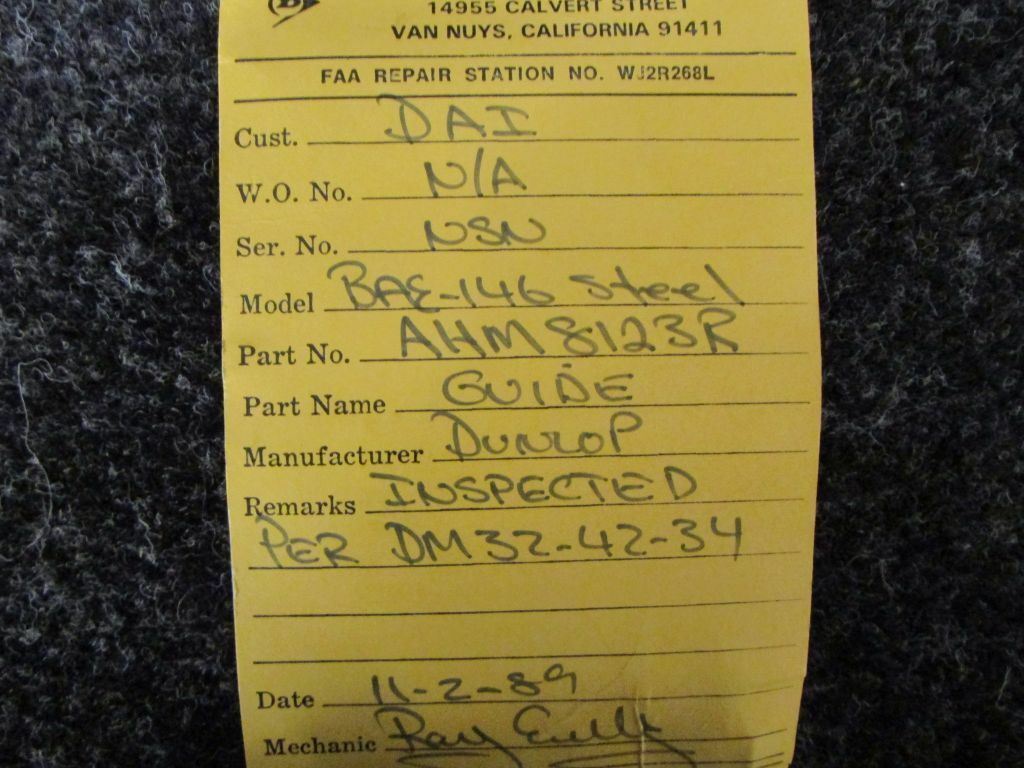 14955 CALVERT STREET
VAN NUYS, CALIFORNIA 91411
FAA REPAIR STATION NO. WJ2R268L
Cust. DAI
W.O. No. N/A
Ser. No. NSN
Model BAE-146 Steel
Part No. AHM8123R
Part Name GUIDE
Manufacturer DUNLOP
Remarks INSPECTED
PER DM32-42-34
Date 11-2-89
Mechanic Ray